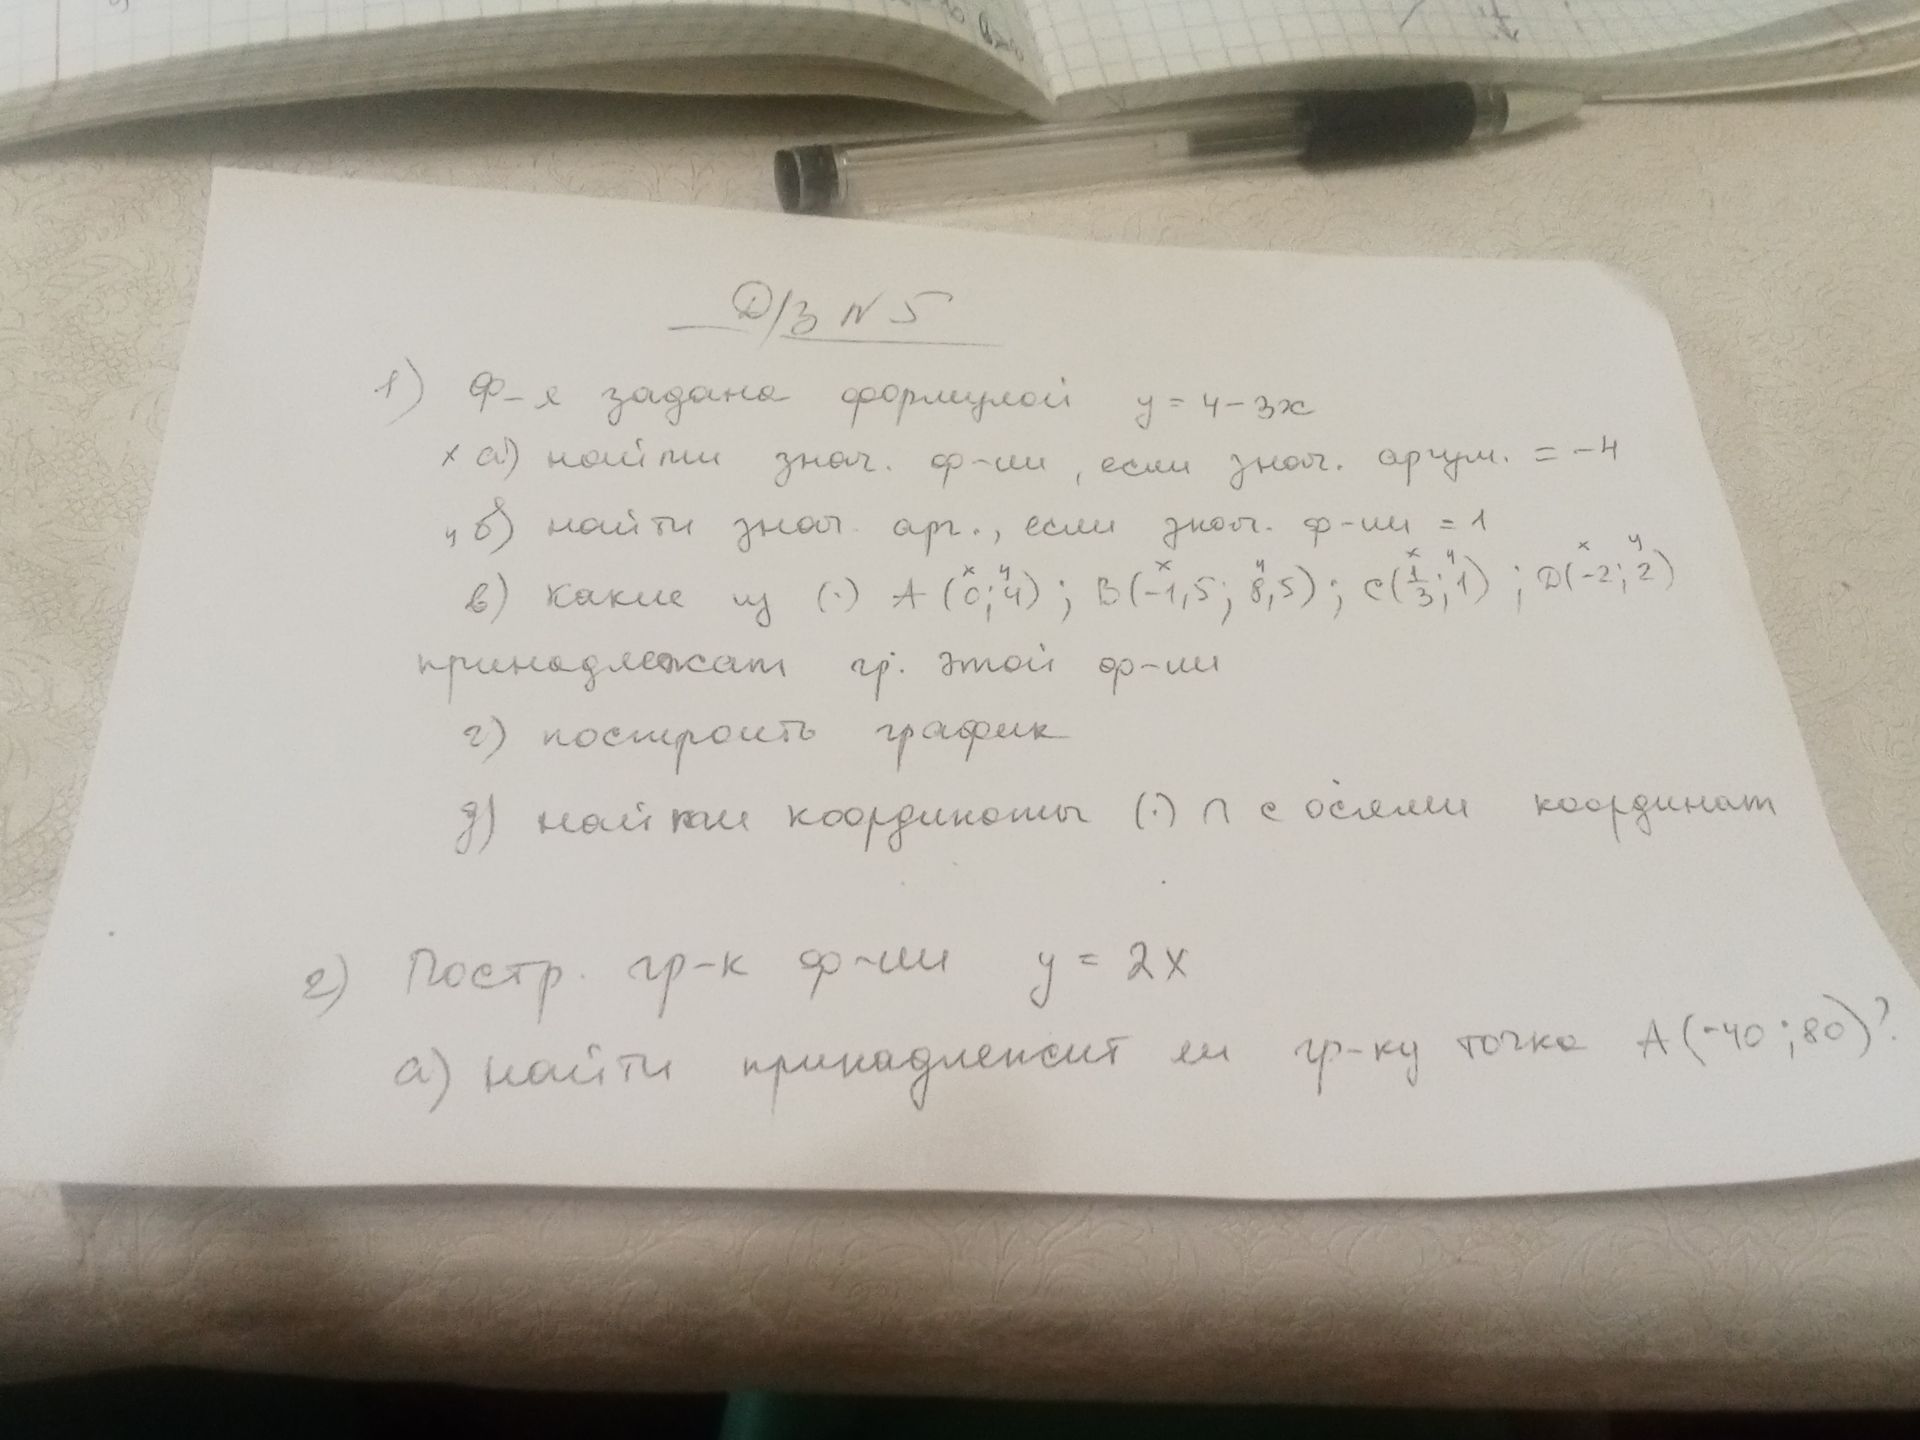 Д/З N 5
1) Ф-я задана формулой y = 4 - 3x
x а) найти знач. ф-ии, если знач. аргум. = -4
y б) найти знач. арг., если знач. ф-ии = 1
x y x y x y x y
в) какие из (·) A (0; 4); B(-1,5; 8,5); C(1/3; 1); D(-2; 2)
принадлежат гр. этой ф-ии
г) построить график
д) найти координаты (·) ∩ с осями координат
2) Постр. гр-к ф-ии y = 2x
а) найти принадлежит ли гр-ку точка A(-40; 80)?